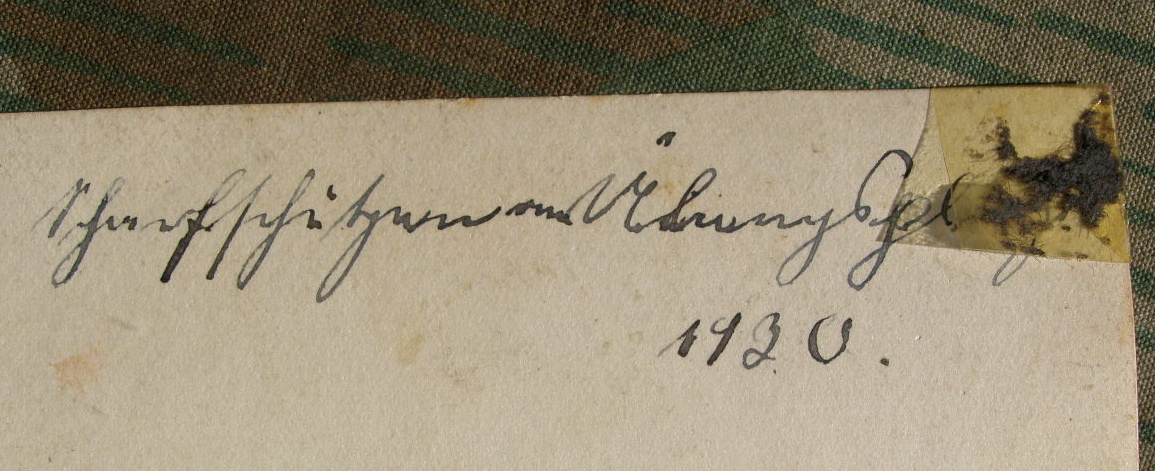 Scharfschützen am Übungspl
1930.